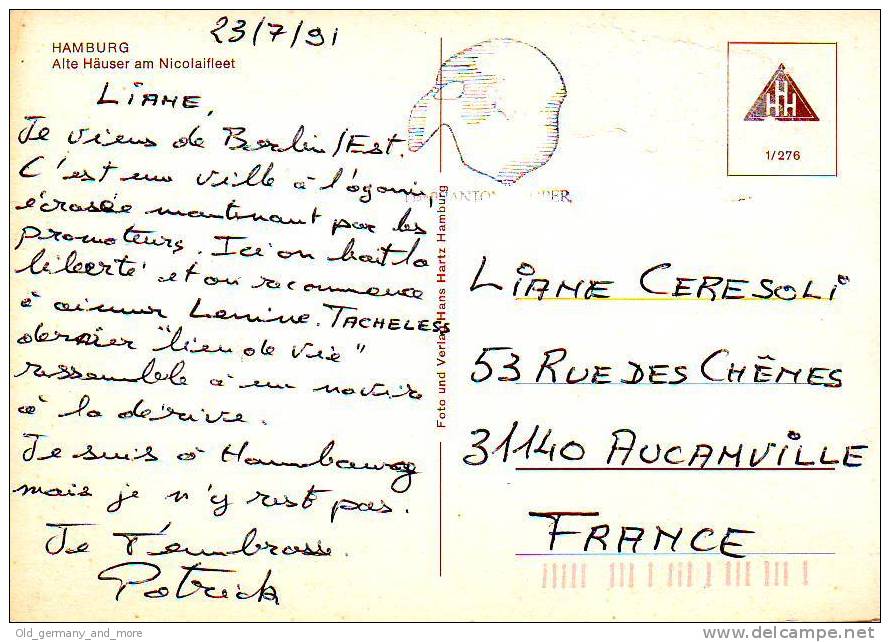 23/7/91
HAMBURG
Alte Häuser am Nicolaifleet
LIANE,
Je viens de Berlin/Est.
C'est une ville à l'agonie,
écrasée maintenant par les
promoteurs. Ici on hait la
liberté et on recommence
à aimer Lenine. TACHELESS
dernier "lieu de vie"
ressemble à un navire
à la dérive.
Je suis à Hambourg
mais je n'y reste pas.
Je t'embrasse.
Patrick
Foto und Verlag Hans Hartz Hamburg
HHH
1/276
LIANE CERESOLI
53 RUE DES CHÊNES
31140 AUCAMVILLE
FRANCE
Old_germany_and_more
delcampe.net